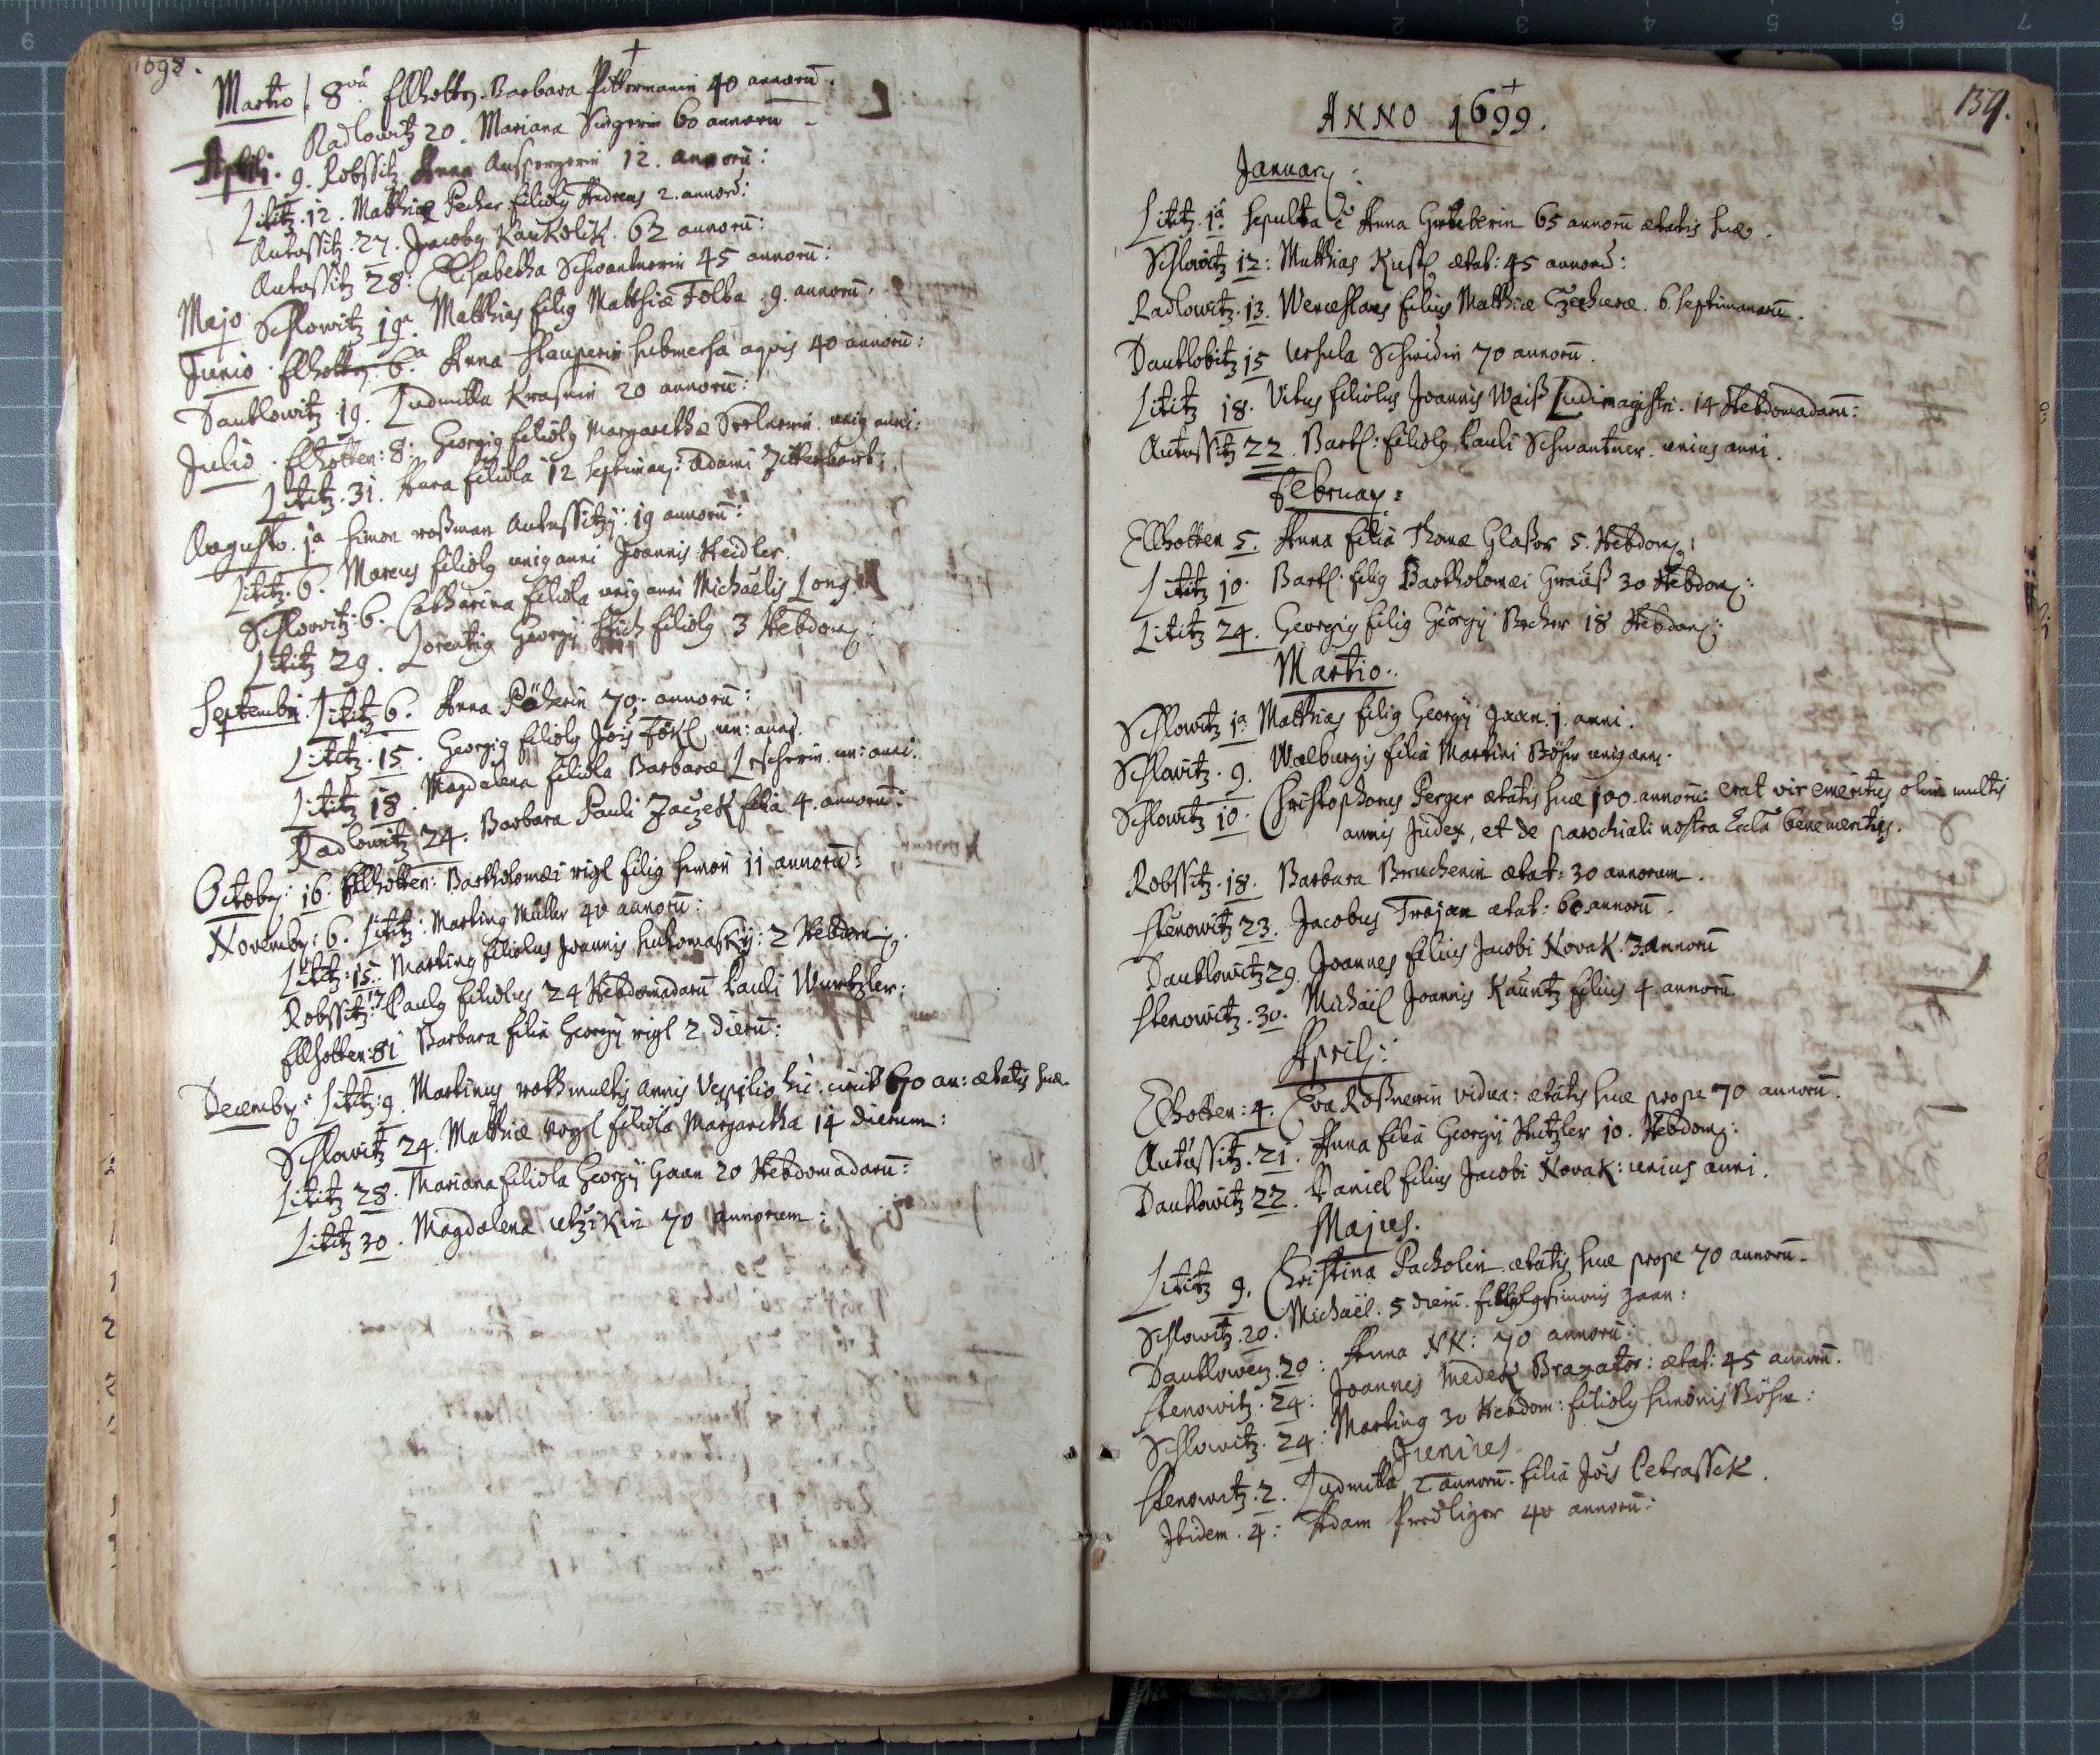 1698.
Martio 8va Ellhotten. Barbara Pittermanin 40 annorū.
Radlowitz 20. Mariana Singerin 60 annorū
Aprili. 9. Robssitz. Anna 12. annorū:
Lititz. 12. Matthiæ Pecher filiolg Andreas 2. annorū:
Autassitz. 27. Jacobg Kaukolik. 62 annorū:
Autassitz 28: Elisabetha Schwantnerin 45 annorū:
Majo Schlowitz 19a. Matthias filig Matthiæ Folba. 9. annorū.
Junio. Ellhotten. 6.a Anna Stauperin submersa aqvis 40 annorū:
Dautlowitz. 19. Ludmilla Krasnin 20 annorū:
Julio. Ellhotten: 8: Georgig filiolg Margarethæ unig anni:
Lititz. 31. Anna filiola 12 septiman: Adami Zitterbart:
Augusto. 1.a Simon roßman Autassitzÿ: 19 annorū:
Lititz. 6. Marcus filiolg unig anni Joannis Heidler.
Schlowitz. 6. Catharina filiola unig anni Michaëlis Long.
Lititz 29. Lorentig Georgÿ filiolg 3 Hebdom:
Septembri. Lititz 6. Anna Pöcherin 70. annorū:
Lititz. 15. Georgig filiolg Jois Fökl un: anni.
Lititz 18. Magdalena filiola Barbaræ Lescherin. un: anni.
Radlowitz 24. Barbara Pauli Zaczek filia 4. annorū:
Octobr: 16. Ellhotten: Bartholomæi rigl filig Simon 11 annorū:
Novembr: 6. Lititz: Marting Müller 40 annorū:
Lititz: 15. Marting filiolus Joannis Hutomaskÿ: 2 Hebdom:
Robssitz: 17 Paulg filiolus 24 Hebdomadarū Pauli Wurtzler:
Ellhotten: Barbara filia Georgÿ rigl 2 dierū:
Decembr: Lititz: 9. Martinus roth multis annis Vespilio hic: vixit 60 an: ætatis suæ.
Schlowitz 24. Matthiæ Vogl filiola Margaretha 14 dierum:
Lititz 28. Mariana filiola Georgÿ Gaan 20 Hebdomadarū:
Lititz 30. Magdalena utzikin 70 annorum:
139.
ANNO 1699.
Januarÿ:
Lititz. 1.a Sepulta ē Anna 65 annorū ætatis suæ.
Schlowitz 12: Matthias Kustl ætat: 45 annorū:
Radlowitz. 13. Wenceslaus filius Matthiæ Czecheræ. 6. septimanarū.
Dautlowitz 15 Ursula Schmidin 70 annorū.
Lititz 18. Vitus filiolus Joannis Waiß Ludimagistri. 14 Hebdomadarū:
Autassitz 22. Bartl: filiolg Pauli Schwantner. unius anni.
Februarÿ:
Ellhotten 5. Anna filia Thomæ Glaßer 5. Hebdom:
Lititz 10. Bartl. filig Bartholomæi Grauß 30 Hebdom:
Lititz 24. Georgig filig Georgÿ Becher 18 Hebdom:
Martio:.
Schlowitz 1a Matthias filig Georgÿ Jaan. 1. anni.
Schlowitz. 9. Walburgis filia Martini Böhm unig anni.
Schlowitz 10. Christophorus Perger ætatis suæ 100 annorū: erat vir emeritus olim multis
annis Judex, et de parochiali nostra Eccla benemeritus.
Robssitz. 18. Barbara Bruchenin ætat: 30 annorum.
Stenowitz 23. Jacobus Trojan ætat: 60 annorū.
Dautlowitz 29. Joannes filius Jacobi Novak. 3 annorū
Stenowitz. 30. Michaël Joannis Kauntz filius 4 annorū.
April:
Elhotten: 4. Eva Roßnerin vidua: ætatis suæ prope 70 annorū.
Autassitz. 21. Anna filia Georgÿ Hutzler 10. Hebdom:
Dautlowitz 22. Daniel filius Jacobi Novak: unius anni.
Majus.
Lititz 9. Christina Pacholin ætatis suæ prope 70 annorū.
Schlowitz. 20. Michaël. 5 dierū. Simonis Jaan:
Dautlowitz. 20: Anna NN: 70 annorū:
Stenowitz. 24: Joannes Medek Braxator: ætat: 45 annorū.
Schlowitz. 24: Marting 30 Hebdom: filiolg Simonis Böhm:
Junius
Stenowitz. 2. Ludmilla 2 annorū. filia Jois Petrassek.
Ibidem. 4: Adam Prediger 40 annorū: